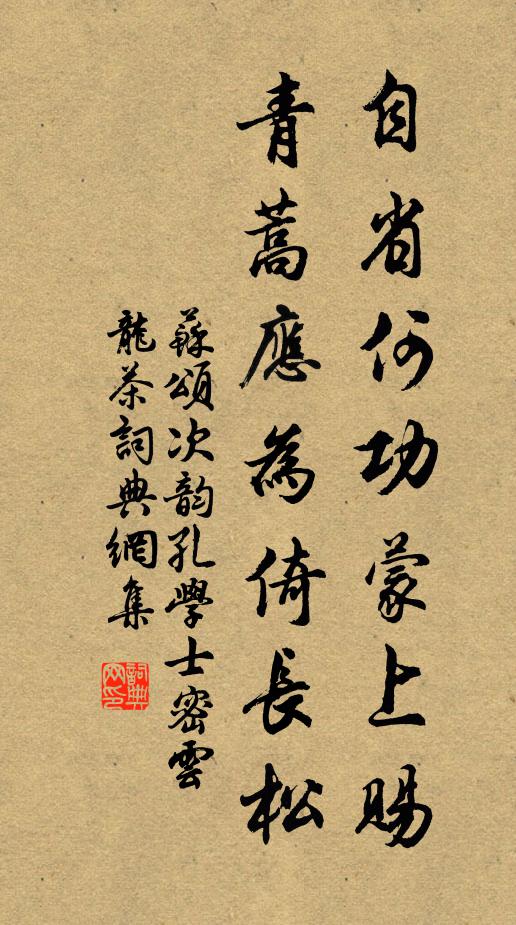 自省何功蒙上賜
青蒿應為倚長松
蘇頌次韵孔學士密雲
龍茶詞典網集
詞典
网印